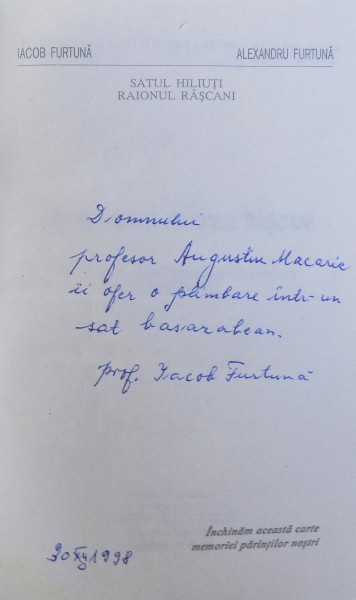 IACOB FURTUNĂ ALEXANDRU FURTUNĂ
SATUL HILIUȚI
RAIONUL RÂȘCANI
Domnului
profesor Augustin Macarie
îi ofer o plimbare într-un
sat basarabean.
prof. Iacob Furtună
Închinăm această carte
memoriei părinților noștri
30 XII 1998